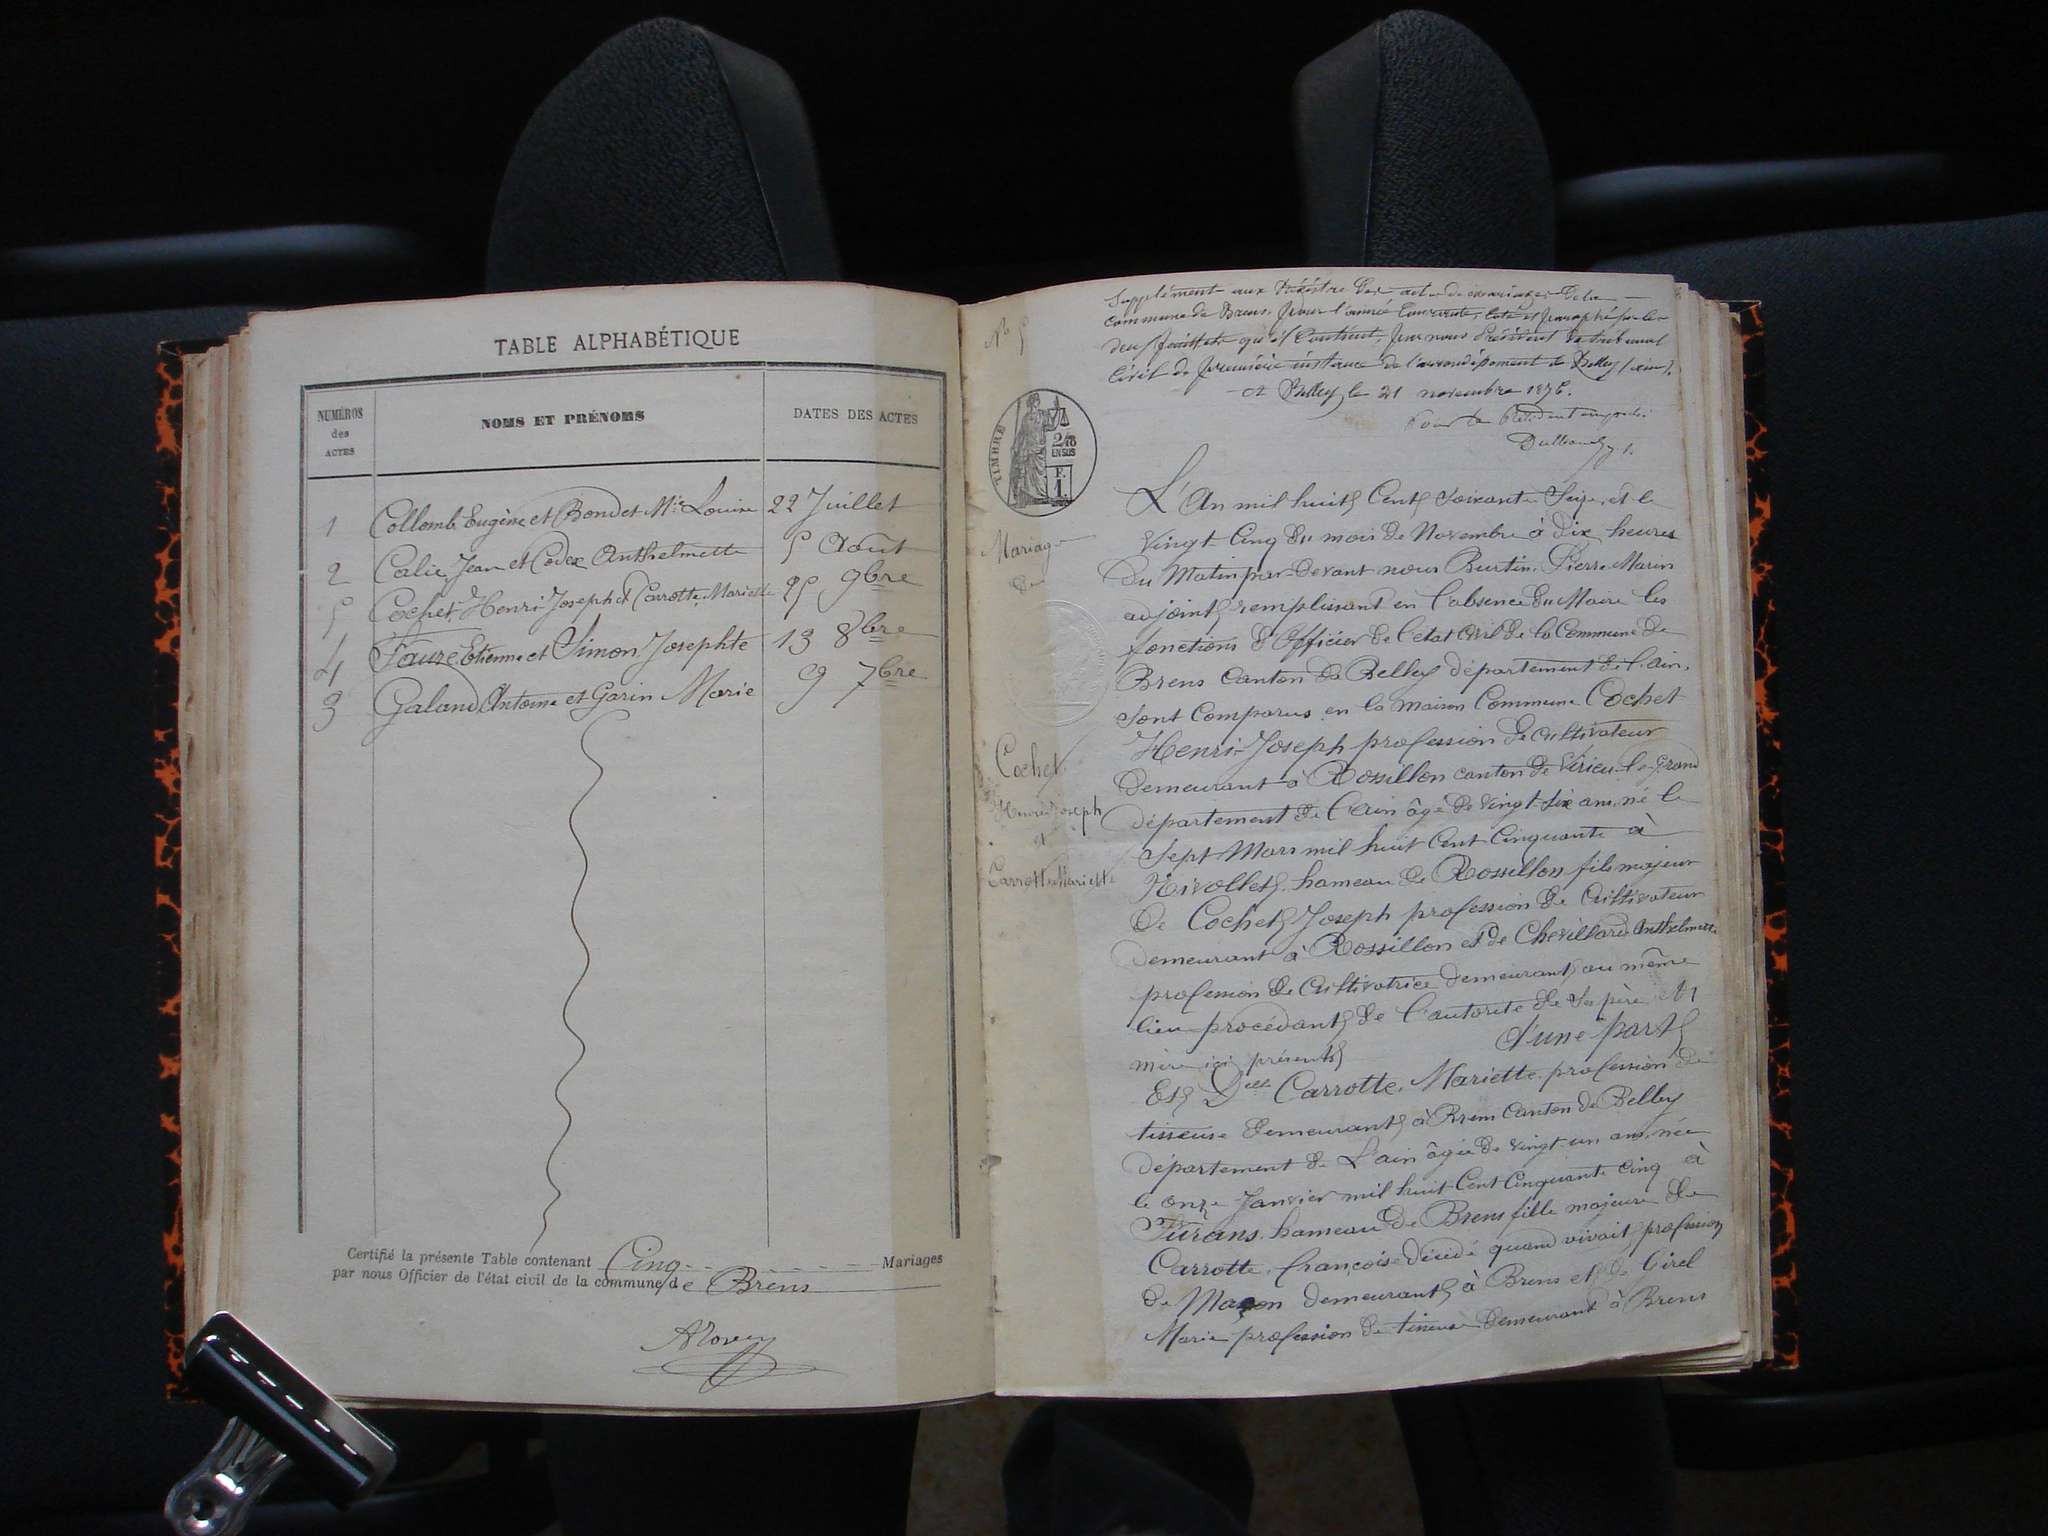 TABLE ALPHABÉTIQUE
NUMÉROS
des
ACTES
NOMS ET PRÉNOMS
DATES DES ACTES
1 Collomb Eugène et Bondet Mie Louise 22 Juillet
2 Calix Jean et Codex Anthelmette 5 Août
5 Cochet Henri-Joseph et Carrotte Mariette 25 9bre
4 Faure Etienne et Simon Josephte 13 8bre
3 Galand Antoine et Garin Marie 9 7bre
Certifié la présente Table contenant Cinq Mariages
par nous Officier de l'état civil de la commune de Brens
No 5
Supplément aux Régistre des actes de mariages de la
commune de Brens, pour l'année courante, coté et paraphé sur les
deux feuillets qu'il contient, par nous Président du tribunal
Civil de première instance de l'arrondissement de Belley (ain).
a Belley le 21 novembre 1876.
Pour le Président empêché
TIMBRE
2/10
EN SUS
F.
1.
Mariage
de
Cochet
Henri Joseph
et
Carrotte Mariette
L'An mil huit Cent soixante Seize, et le
vingt Cinq du mois de Novembre à dix heures
du Matin par-devant nous Burtin, Pierre Marin
adjoint remplissant en l'absence du Maire les
fonctions d'Officier de l'état Civil de la Commune de
Brens Canton de Belley département de l'ain,
sont Comparus en la maison Commune Cochet
Henri-Joseph profession de Cultivateur
demeurant à Rossillon canton de Virieu-le-Grand
département de l'ain âgé de vingt six ans, né le
Sept Mars mil huit Cent Cinquante à
Rivollet, hameau de Rossillon fils majeur
de Cochet Joseph profession de Cultivateur
demeurant à Rossillon et de Chevillard Anthelmette
profession de Cultivatrice demeurant au même
lieu procédant de l'autorité de ses père et
mère ici présents d'une part
Et Dlle Carrotte, Mariette, profession de
tisseuse demeurant à Brens Canton de Belley
département de L'ain âgée de vingt un ans, née
le onze Janvier mil huit Cent Cinquante cinq à
hameau de Brens fille majeure de
Carrotte, françois décédé quand vivait profession
de Maçon demeurant à Brens et de Girel
Marie profession de tisseuse demeurant à Brens